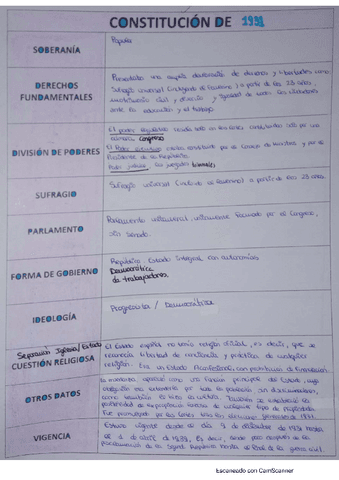 CONSTITUCIÓN DE 1931
SOBERANÍA
Popular
DERECHOS FUNDAMENTALES
Presentaba una amplia declaración de derechos y libertades como
Sufragio universal (incluyendo el femenino) a partir de los 23 años,
matrimonio civil y divorcio, igualdad de todos los ciudadanos
ante la educación y el trabajo.
DIVISIÓN DE PODERES
El poder legislativo residía solo en las Cortes constituidas solo por una
cámara: Congreso
El Poder ejecutivo estaba constituido por el Consejo de Ministros y por el
Presidente de la República.
Poder judicial: los juzgados
SUFRAGIO
Sufragio universal (incluido el femenino) a partir de los 23 años.
PARLAMENTO
Parlamento unicameral: únicamente formado por el Congreso,
sin Senado.
FORMA DE GOBIERNO
República: Estado Integral con autonomías
Democrática
de trabajadores.
IDEOLOGÍA
Progresista / Democrática
Separación Iglesia/Estado
CUESTIÓN RELIGIOSA
El Estado español no tenía religión oficial, es decir, que se
reconocía libertad de conciencia y práctica de cualquier
religión. Era un Estado
OTROS DATOS
La enseñanza aparece como una función principal del Estado,
VIGENCIA
Estuvo vigente desde el día 9 de diciembre de 1931 hasta
el 1 de abril de 1939. Es decir,
de la Segunda República hasta el final de la guerra civil.
Escaneado con CamScanner